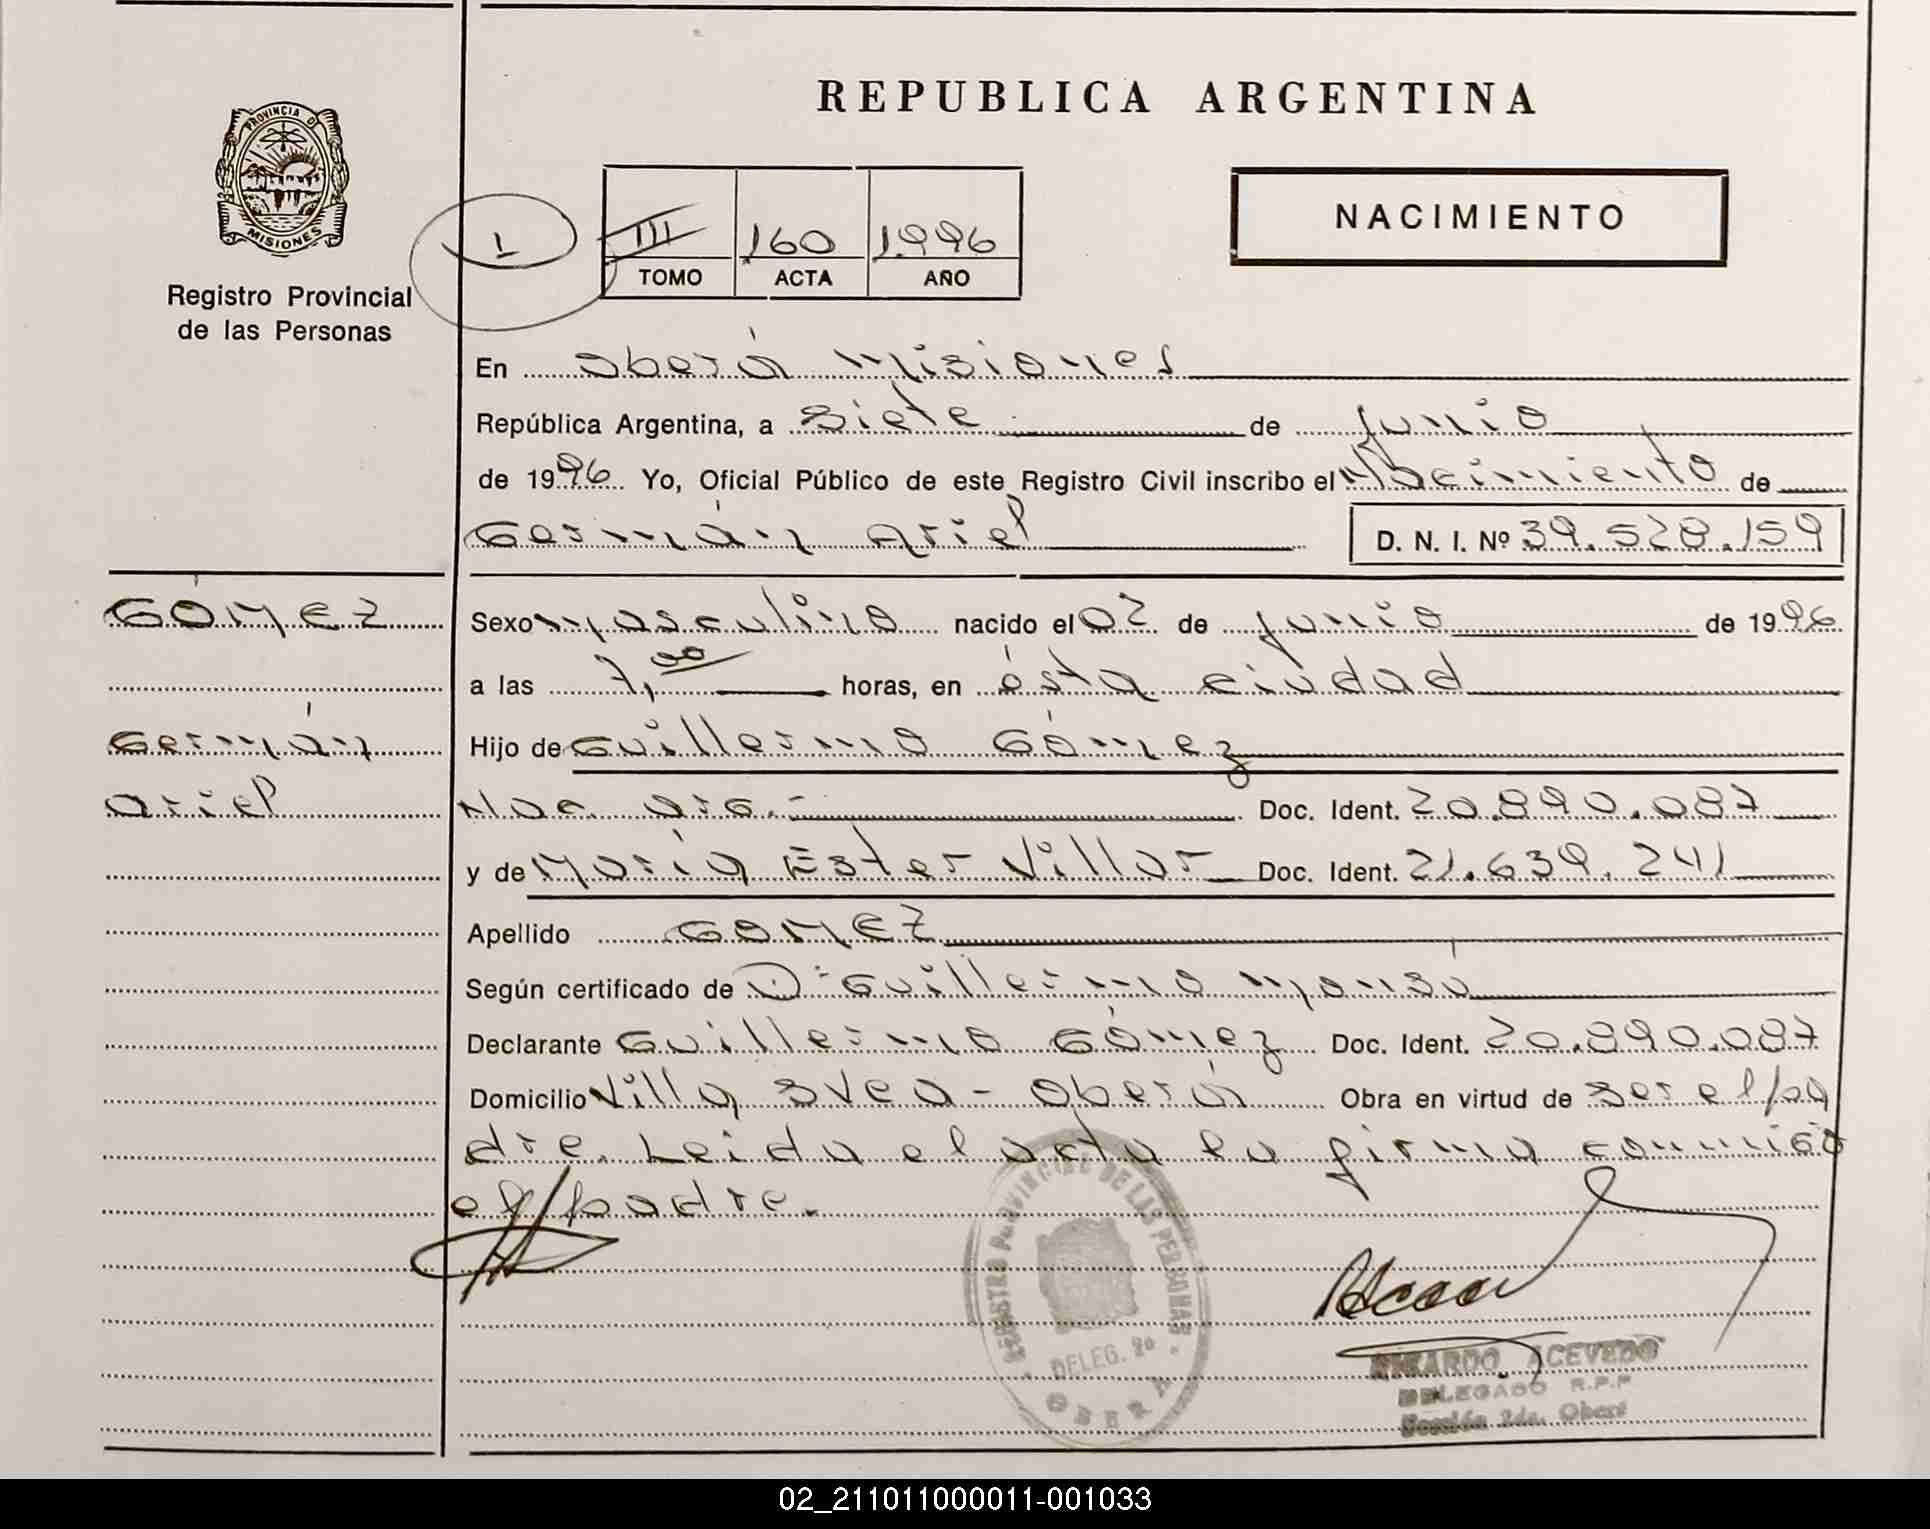 REPUBLICA ARGENTINA
PROVINCIA D
MISIONES
Registro Provincial
de las Personas
I
III 160 1.996
TOMO ACTA AÑO
NACIMIENTO
En Oberá Misiones
República Argentina, a Siete de Junio
de 1996 Yo, Oficial Público de este Registro Civil inscribo el Nacimiento de
Germán Ariel D. N. I. Nº 39.528.159
GÓMEZ
Sexo masculino nacido el 02 de junio de 1996
a las 7,00 horas, en ésta ciudad
Germán
Hijo de Guillermo Gómez
Ariel
Nac. arg.- Doc. Ident. 20.890.087
y de María Ester Villar Doc. Ident. 21.639.241
Apellido GOMEZ
Según certificado de Dr Guillermo
Declarante Guillermo Gómez Doc. Ident. 20.890.087
Domicilio Villa Svea - Oberá Obra en virtud de ser el pa
dre. Leida el acta la firma conmigo
el padre.
REGISTRO PROVINCIAL DE LAS PERSONAS
DELEG. 2a
OBERA
RICARDO ACEVEDO
DELEGADO R.P.P
Sección 2da. Oberá
02_211011000011-001033